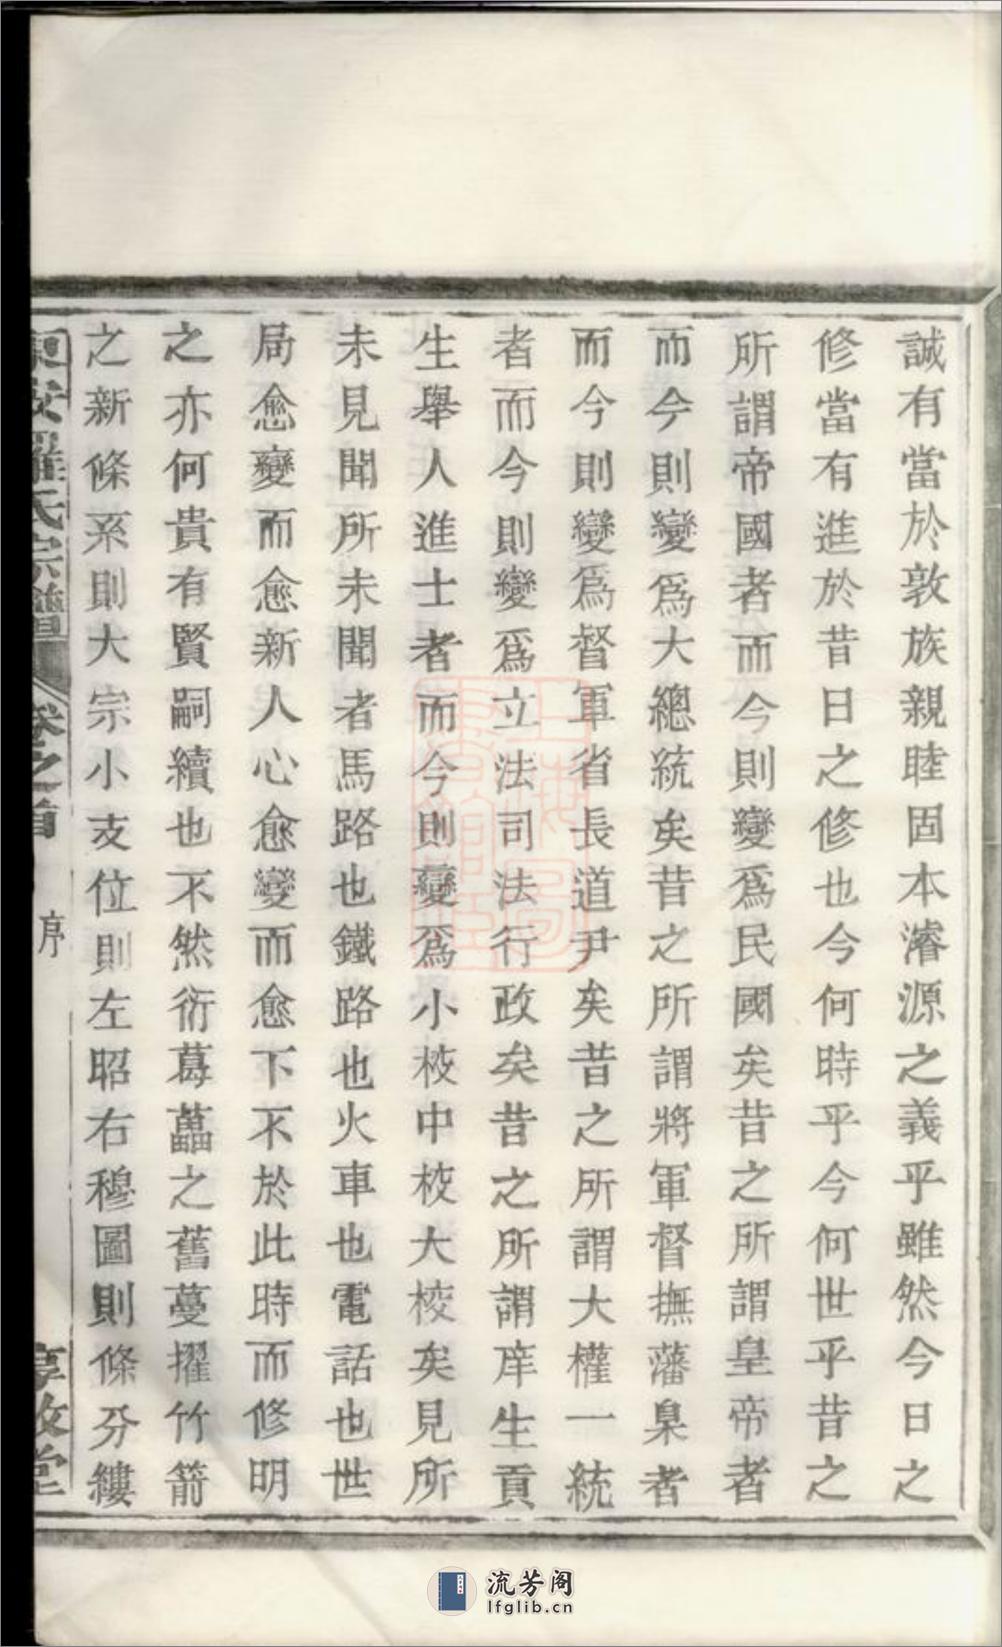 誠有當於敦族親睦固本濬源之義乎雖然今日之
修當有進於昔日之修也今何時乎今何世乎昔之
所謂帝國者而今則變爲民國矣昔之所謂皇帝者
而今則變爲大總統矣昔之所謂將軍督撫藩臬者
而今則變爲督軍省長道尹矣昔之所謂大權一統
者而今則變爲立法司法行政矣昔之所謂庠生貢
生舉人進士者而今則變爲小校中校大校矣見所
未見聞所未聞者馬路也鐵路也火車也電話也世
局愈變而愈新人心愈變而愈下不於此時而修明
之亦何貴有賢嗣續也不然衍葛藟之舊蔓擢竹箭
之新條系則大宗小支位則左昭右穆圖則條分縷
羅氏宗譜 卷之首 序
流芳阁
lfglib.cn